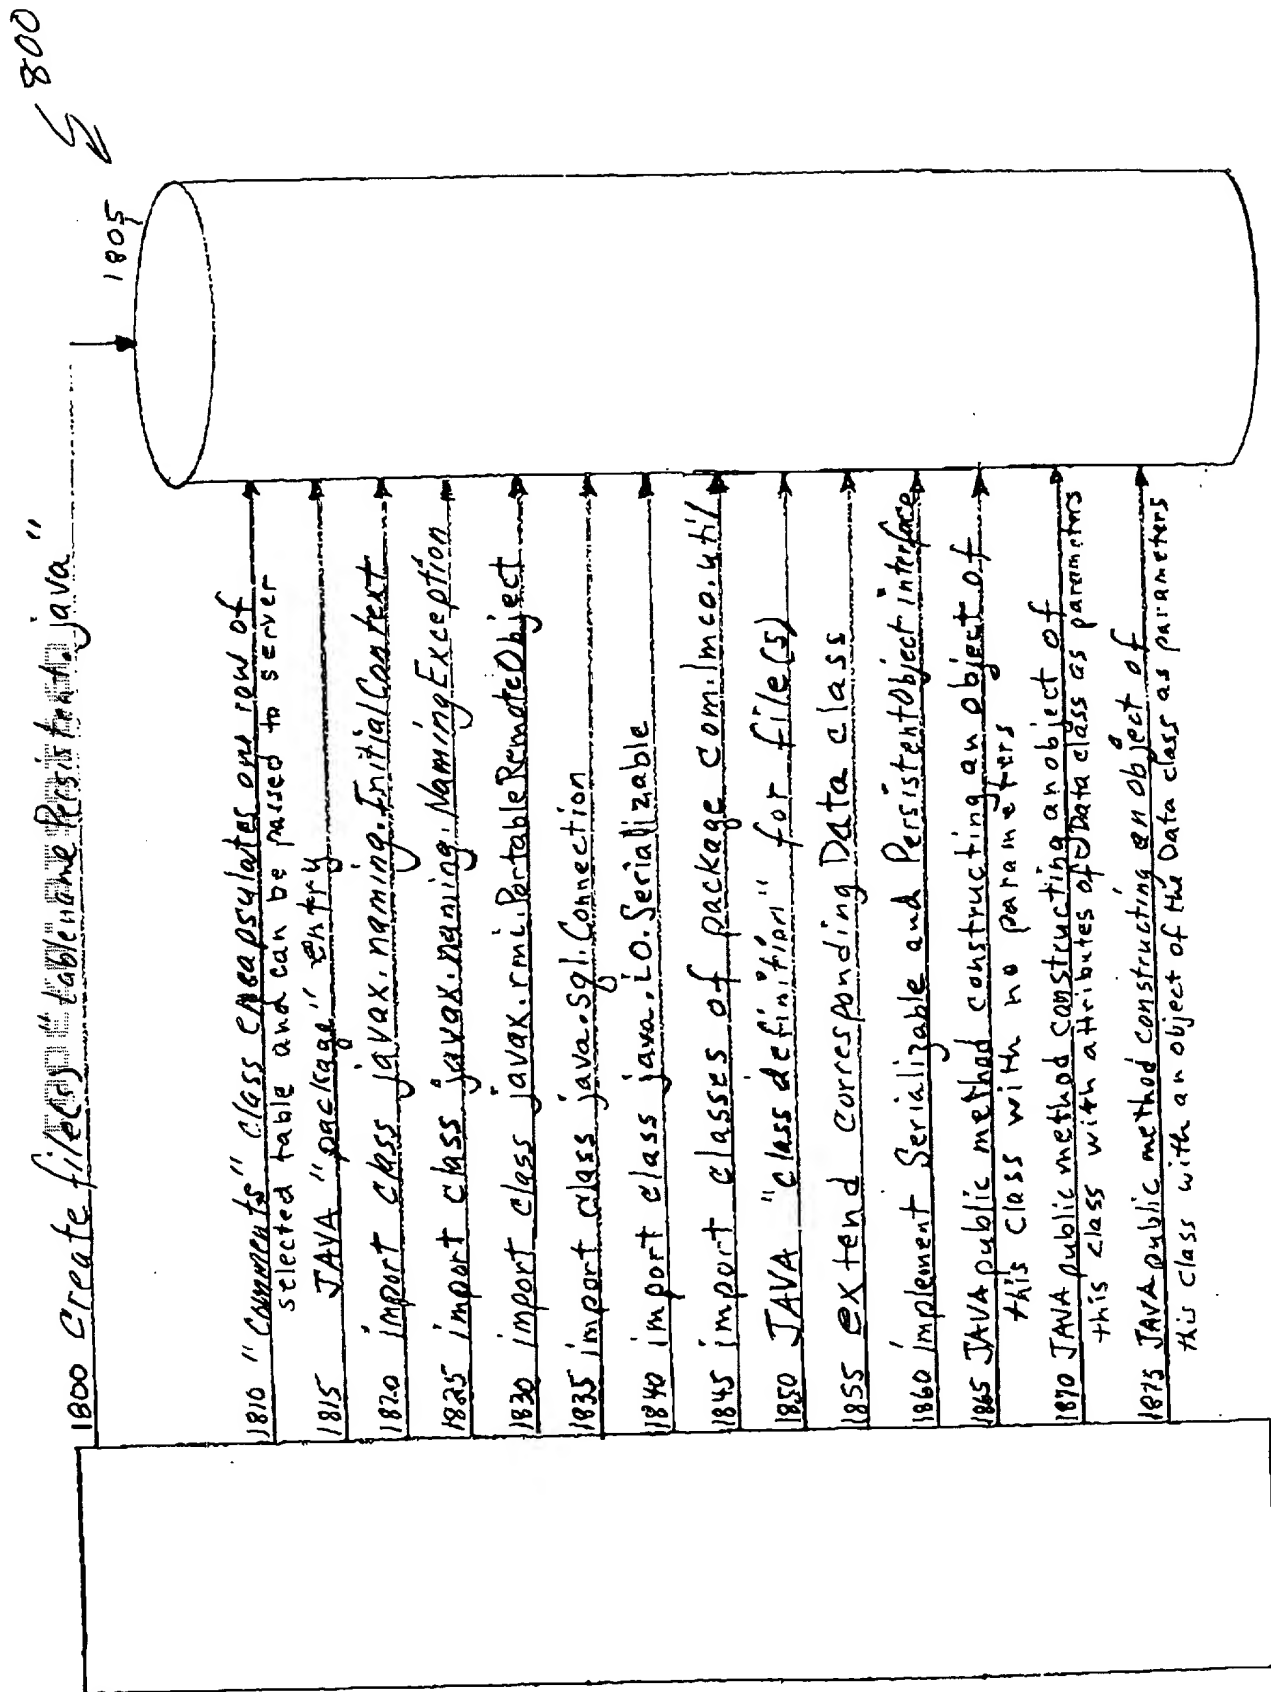 800
1805
1800 create file(s) "tablenamePersistent.java"
1810 "Comments" class encapsulates one row of
selected table and can be passed to server
1815 JAVA "package" entry
1820 import class javax.naming.InitialContext
1825 import class javax.naming.NamingException
1830 import class javax.rmi.PortableRemoteObject
1835 import class java.sql.Connection
1840 import class java.io.Serializable
1845 import classes of package com.lmco.util
1850 JAVA "class definition" for file(s)
1855 extend corresponding Data class
1860 implement Serializable and PersistentObject interface
1865 JAVA public method constructing an object of
this class with no parameters
1870 JAVA public method constructing an object of
this class with attributes of Data class as parameters
1875 JAVA public method constructing an object of
this class with an object of the Data class as parameters